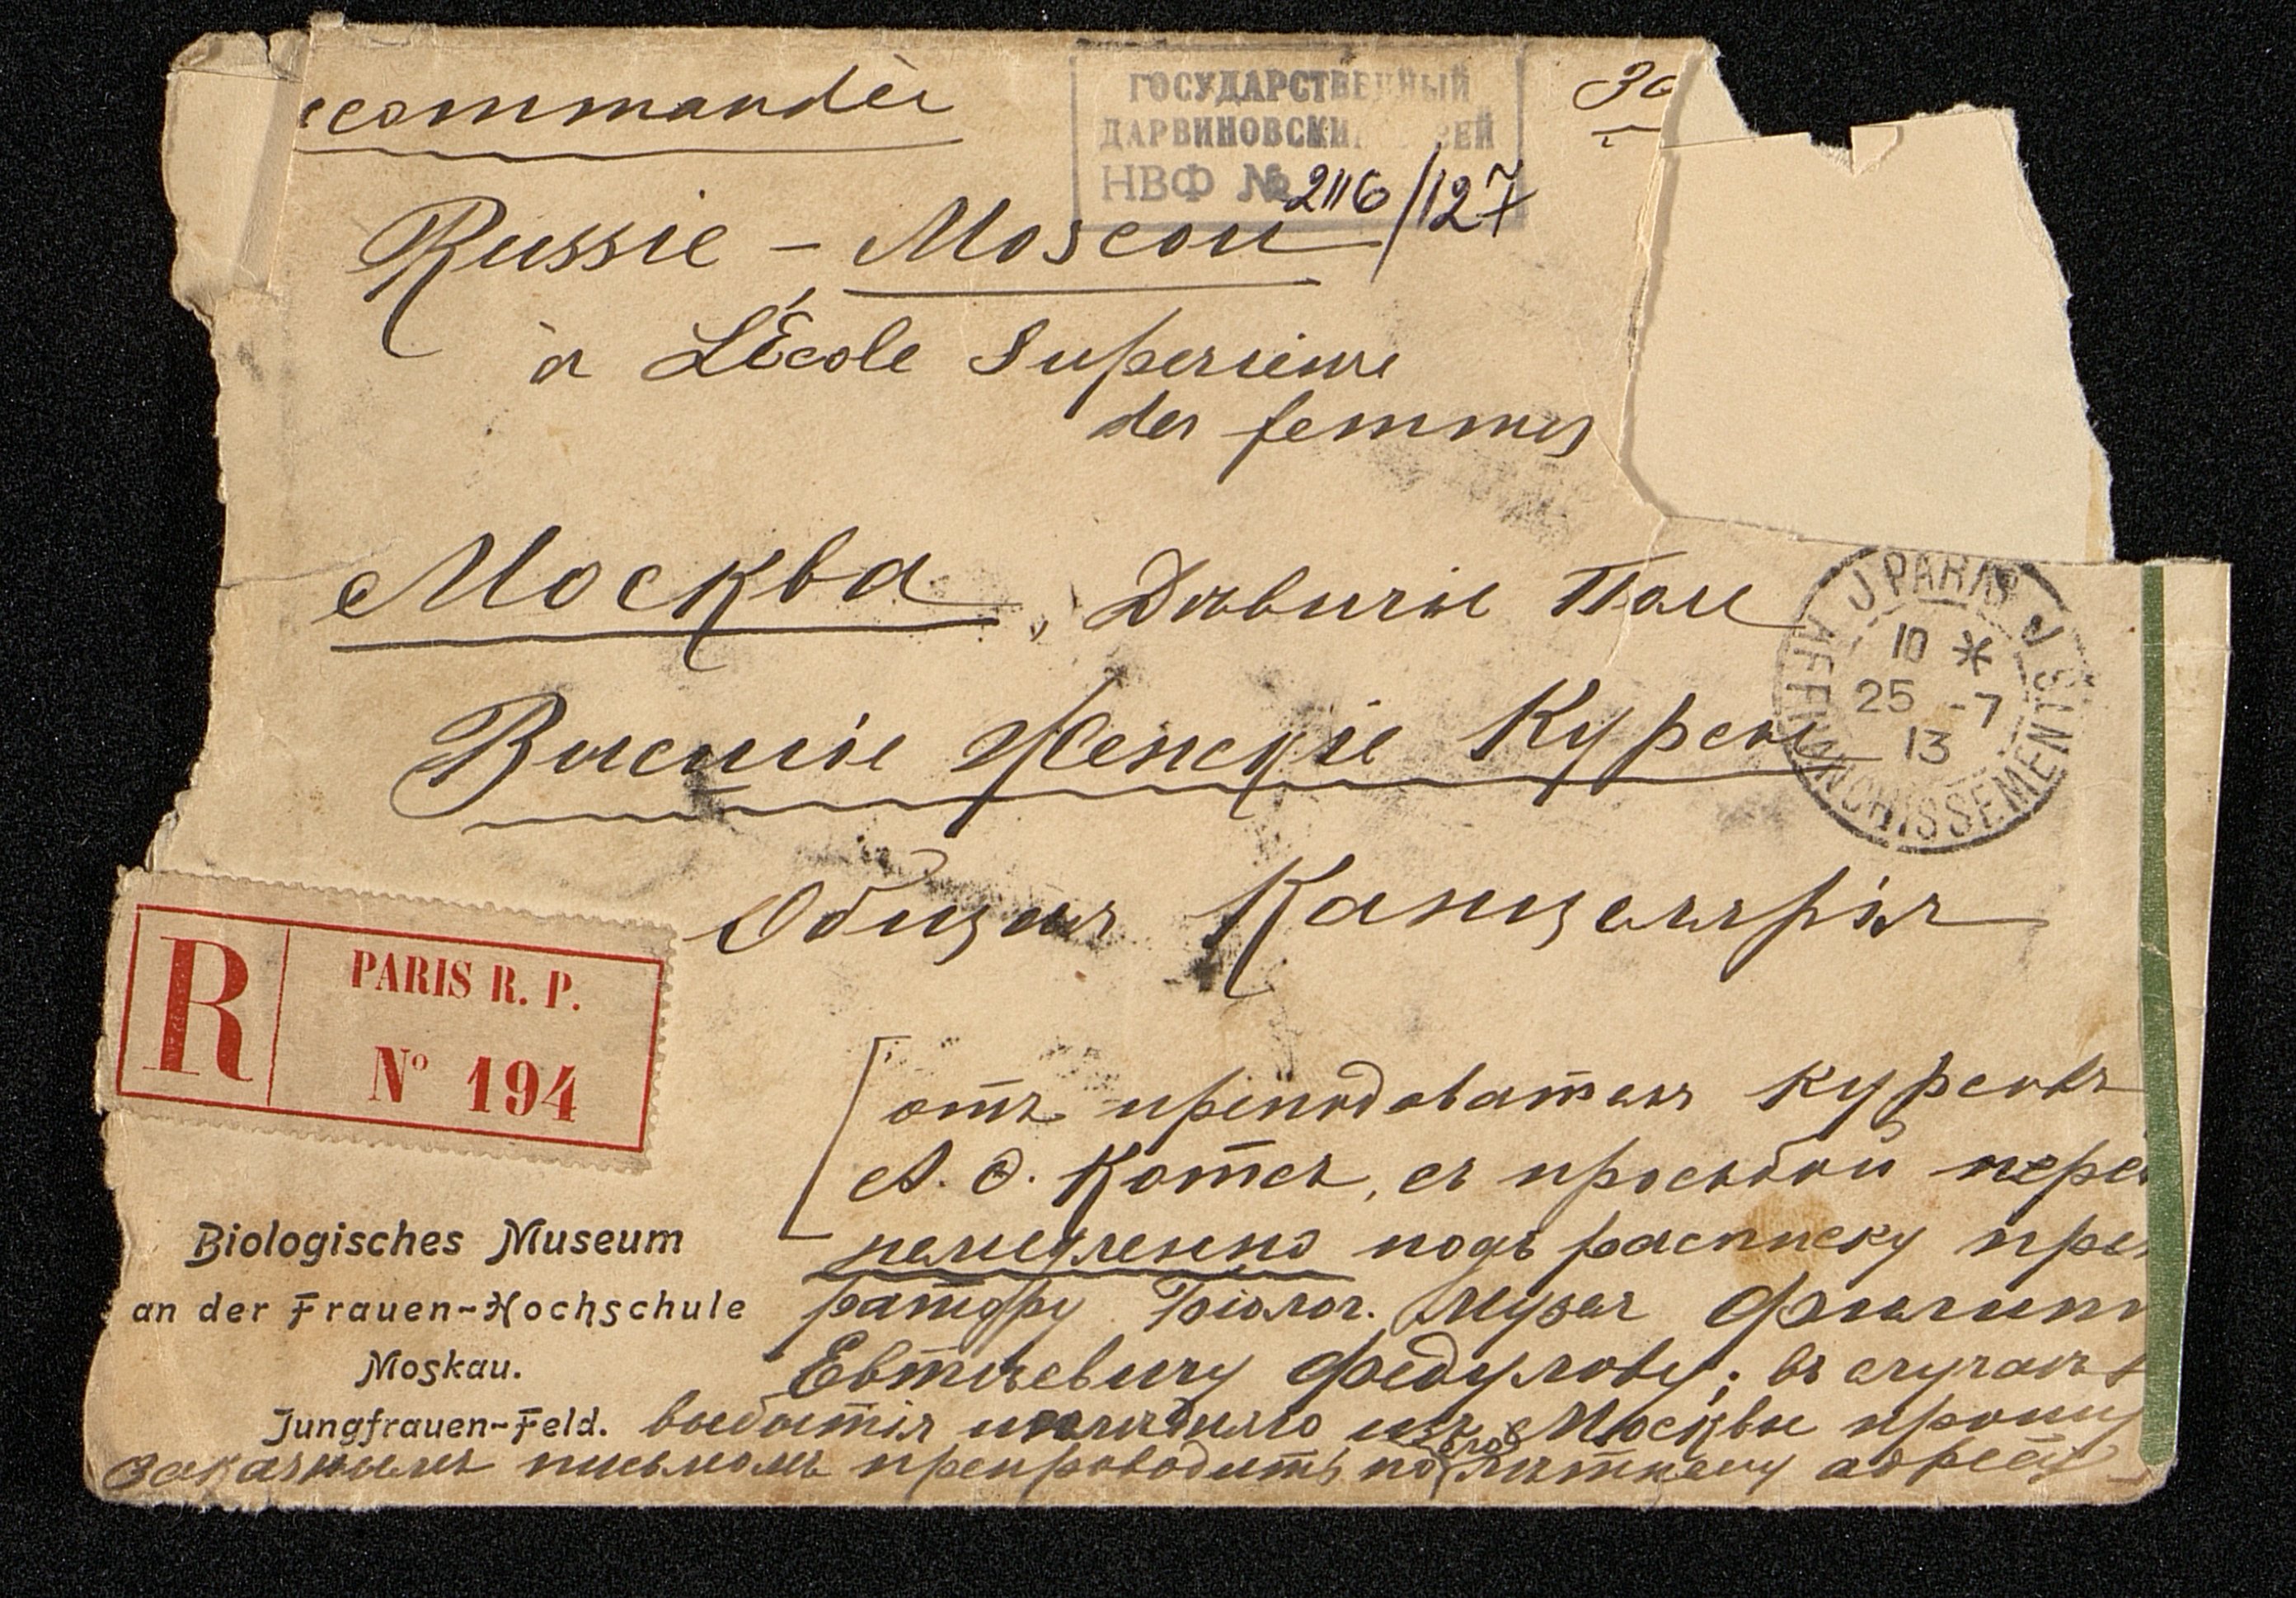 ecommandée
ГОСУДАРСТВЕННЫЙ
ДАРВИНОВСКИЙ МУЗЕЙ
НВФ № 2116/127
30
Russie - Moscou
à L'École Superieure
des femmes
Москва, Дѣвичье Поле
Высшіе Женскіе Курсы
PARIS
10 *
25 -7
13
AFFRANCHISSEMENTS
Общая Канцелярія
R PARIS R. P.
Nº 194
отъ преподавателя курсовъ
А. Ѳ. Котсъ, съ просьбой пере
немедленно подъ расписку пре
ратору Біолог. Музея Филипп
Евтѣевичу Федулову; въ случаѣ
выбытія из Москвы прошу
заказнымъ письмомъ препроводить по адресу
Biologisches Museum
an der Frauen-Hochschule
Moskau.
Jungfrauen-Feld.